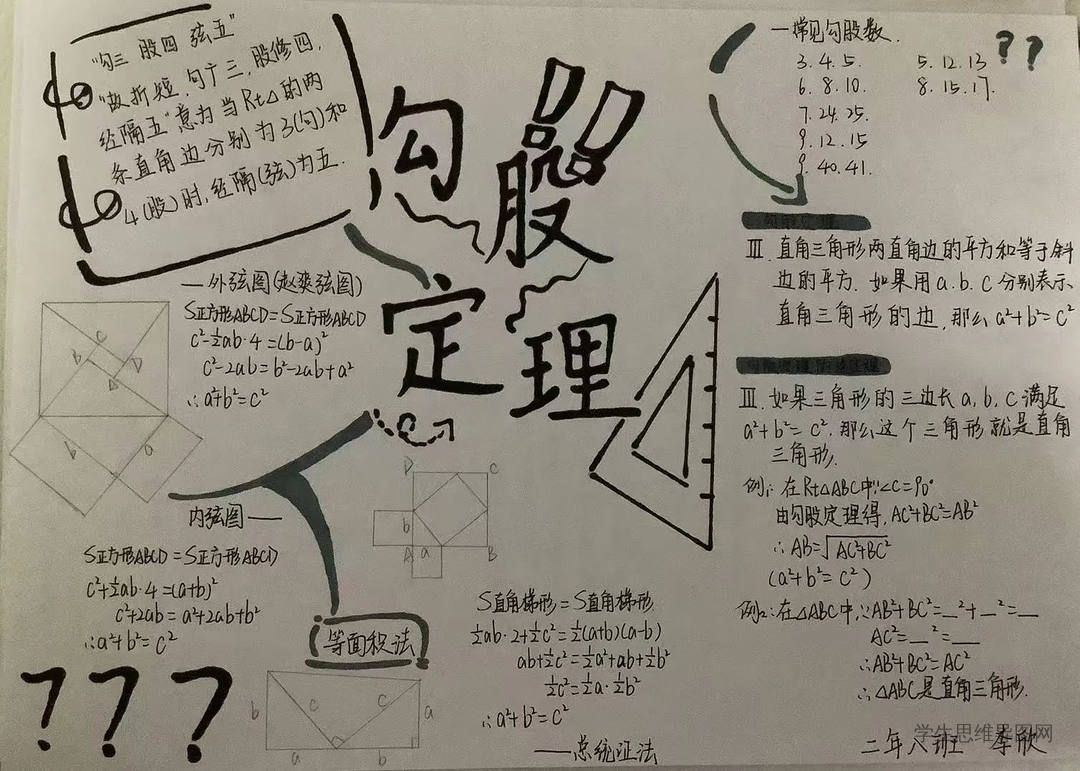 "勾三 股四 弦五"
"故折矩,勾广三,股修四,
经隅五"意为当Rt△的两
条直角边分别为3(勾)和
4(股)时,经隅(弦)为五.
勾股
定理
一常见勾股数.
3.4.5. 5.12.13
6.8.10. 8.15.17.
7.24.25.
9.12.15
9.40.41.
??
Ⅲ.直角三角形两直角边的平方和等于斜
边的平方.如果用a.b.c分别表示
直角三角形的边,那么a²+b²=c²
Ⅲ.如果三角形的三边长a,b,c满足
a²+b²=c²,那么这个三角形就是直角
三角形.
例1:在Rt△ABC中∵∠C=90°
由勾股定理得,AC²+BC²=AB²
∴AB=√AC²+BC²
(a²+b²=c²)
例2:在△ABC中,∵AB²+BC²=__²+__²=__
AC²=__²=__
∴AB²+BC²=AC²
∴△ABC是直角三角形.
二年八班 李欣
学生思维导图网
—外弦图(赵爽弦图)
S正方形ABCD=S正方形ABCD
c²-½ab·4=(b-a)²
c²-2ab=b²-2ab+a²
∴a²+b²=c²
c
b
D
b
a
内弦图—
S正方形ABCD=S正方形ABCD
c²+½ab·4=(a+b)²
c²+2ab=a²+2ab+b²
∴a²+b²=c²
D C
b
A a B
等面积法
???
b c c a
a b
S直角梯形=S直角梯形
½ab·2+½c²=½(a+b)(a-b)
ab+½c²=½a²+ab+½b²
½c²=½a·½b²
∴a²+b²=c²
——总统证法